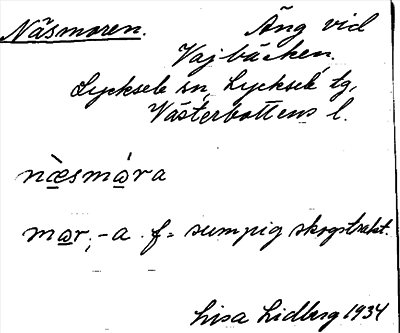 Näsmoren. Äng vid
Vajbäcken.
Lycksele sn, Lycksele tg,
Västerbottens l.
næ̀småra
mar, -a f = sumpig skogstrakt.
Lisa Lidberg 1934